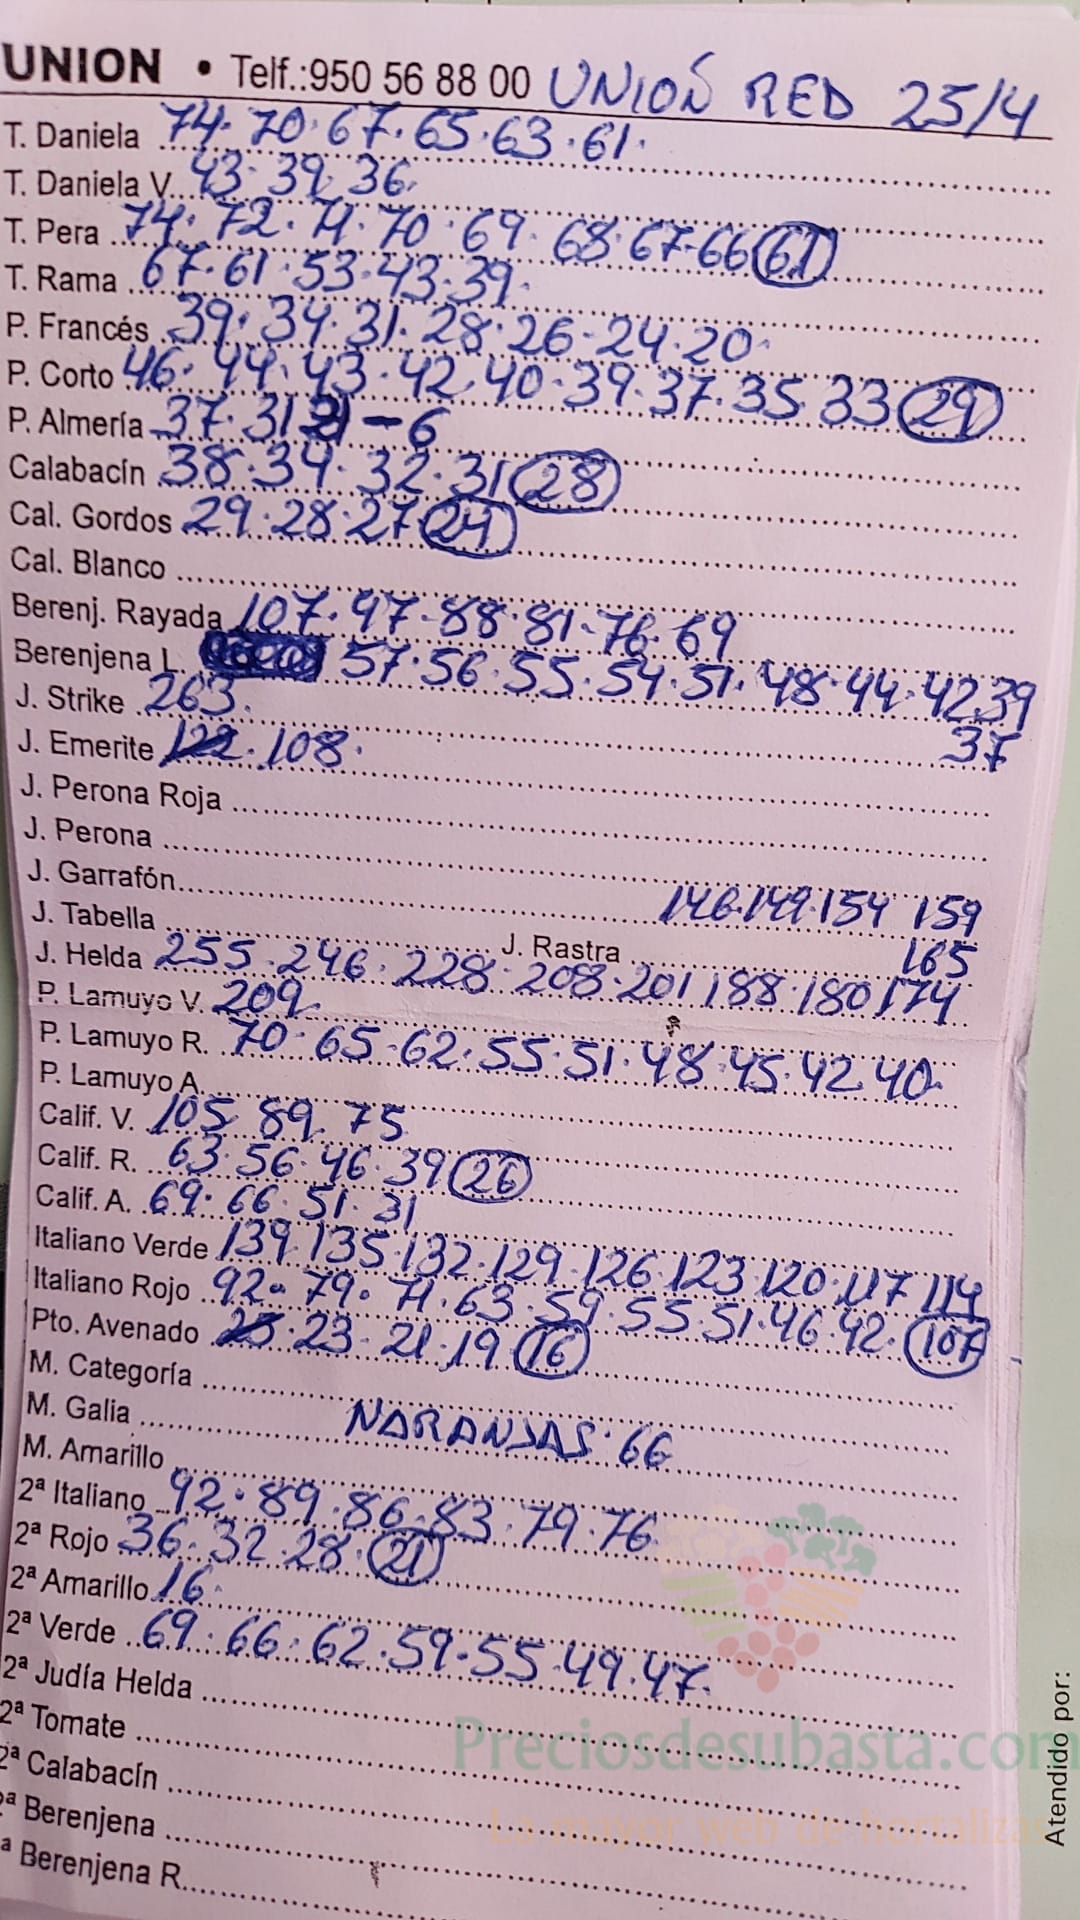 UNION • Telf.:950 56 88 00 UNIÓN RED 25/4
T. Daniela 74·70·67·65·63·61·
T. Daniela V. 43·39·36·
T. Pera 74·72·71·70·69·68·67·66 61
T. Rama 67·61·53·43·39·
P. Francés 39·34·31·28·26·24·20·
P. Corto 46·44·43·42·40·39·37·35·33 29
P. Almería 37·31 -6
Calabacín 38·34·32·31 28
Cal. Gordos 29·28·27 24
Cal. Blanco
Berenj. Rayada 107·97·88·81·76·69
Berenjena L. 57·56·55·54·51·48·44·42 39
37
J. Strike 263·
J. Emerite 122·108·
J. Perona Roja
J. Perona
J. Garrafón
146·149·154 159
165
J. Tabella J. Rastra
J. Helda 255·246·228·208·201 188·180 174
P. Lamuyo V. 209
P. Lamuyo R. 70·65·62·55·51·48·45·42 40·
P. Lamuyo A.
Calif. V. 105 89 75
Calif. R. 63·56·46·39 26
Calif. A. 69·66·51·31
Italiano Verde 139·135·132·129·126·123·120·117 114
107
Italiano Rojo 92·79·71·63·59·55·51·46·42·
Pto. Avenado 23·21·19 16
M. Categoría
M. Galia NARANJAS·66
M. Amarillo
2ª Italiano 92·89·86·83·79·76
2ª Rojo 36·32·28· 21
2ª Amarillo 16·
2ª Verde 69·66·62·59·55·49·47·
2ª Judía Helda
2ª Tomate
2ª Calabacín
ª Berenjena
ª Berenjena R.
Preciosdesubasta.com
La mayor web de hortalizas
Atendido por: